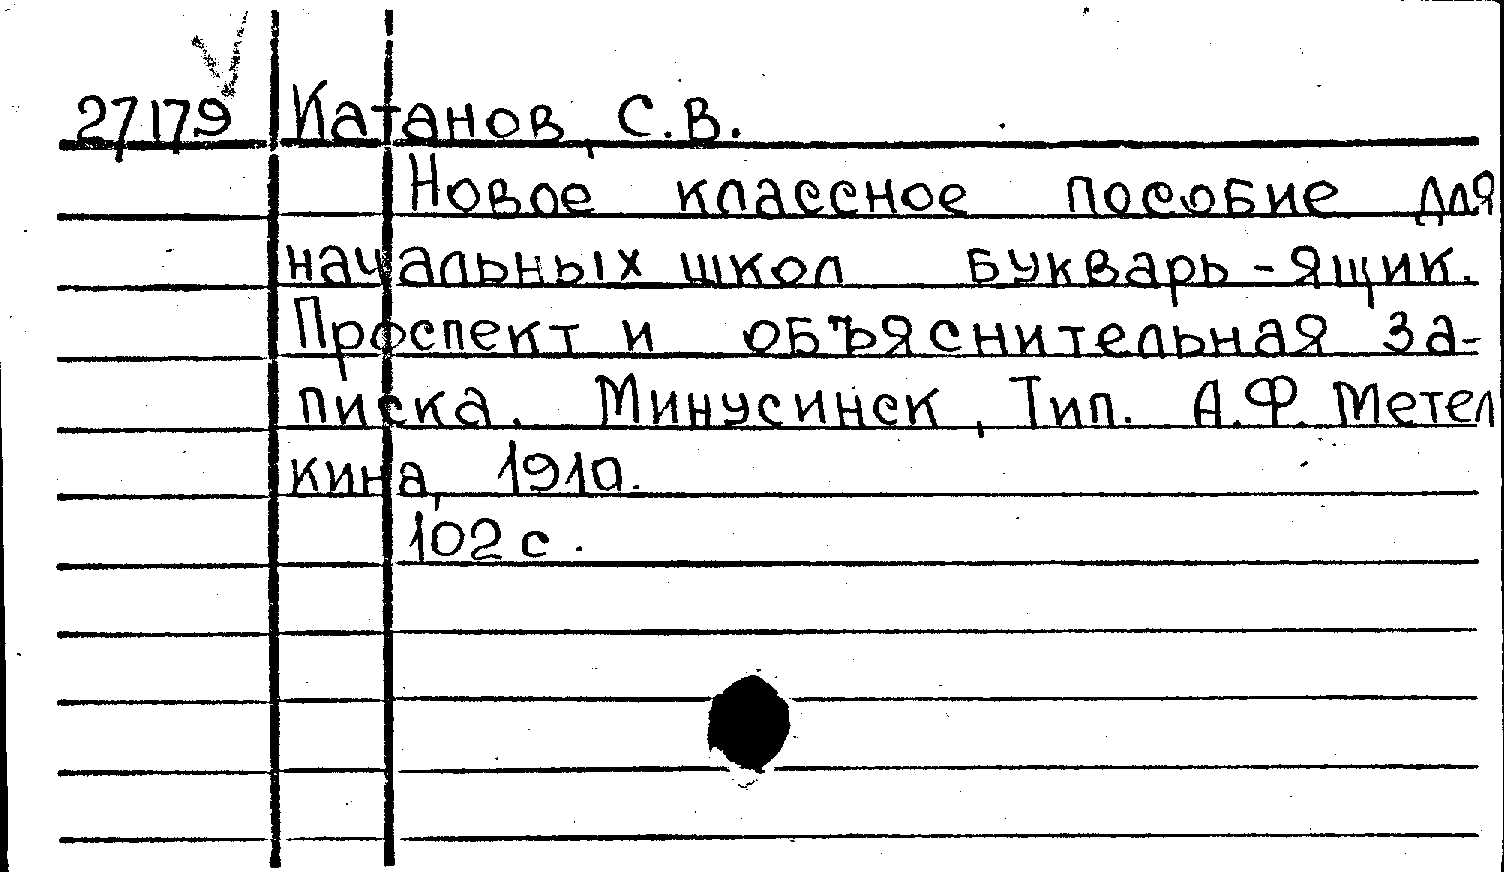 27179 Катанов, С.В.
Новое классное пособие для
начальных школ Букварь-ящик.
Проспект и объяснительная за-
писка. Минусинск, Тип. А.Ф. Метел
кина, 1910.
102 с.